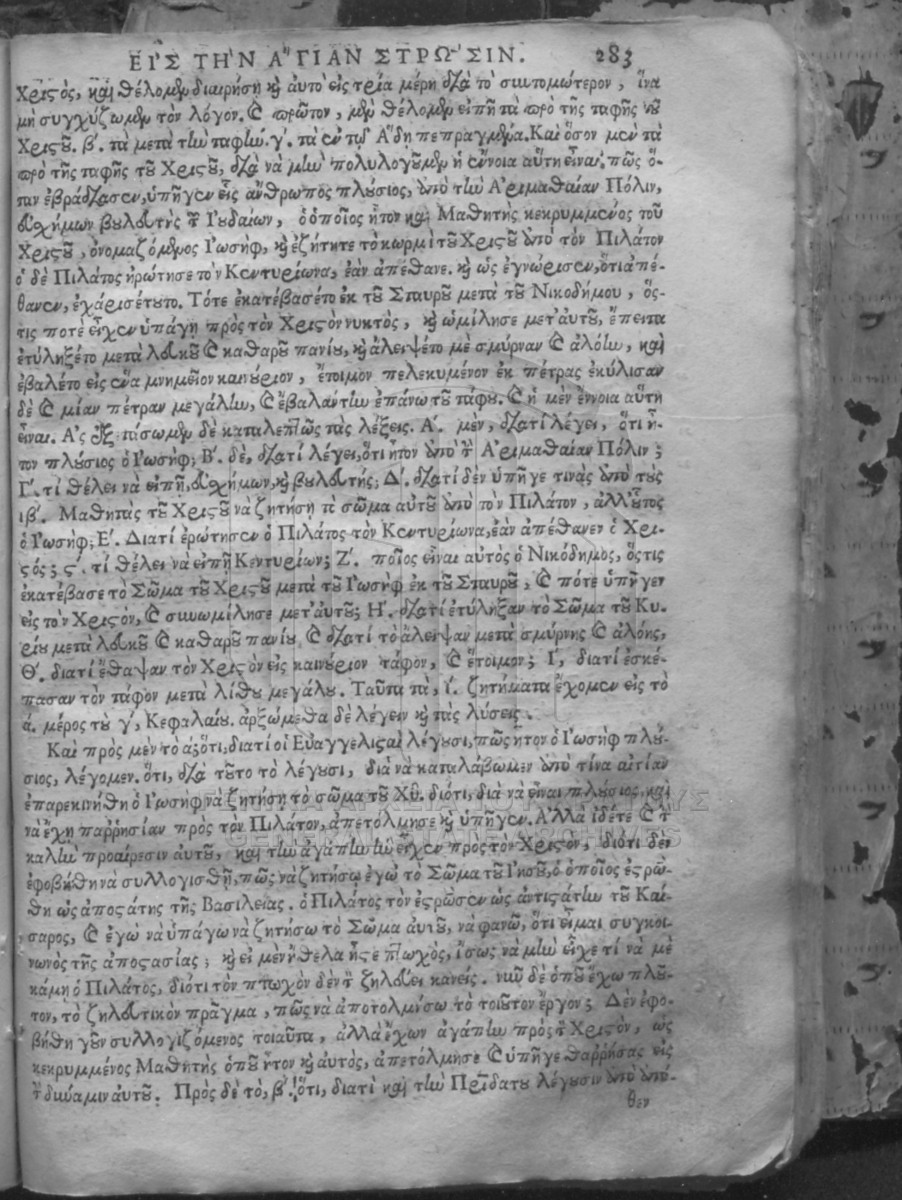 ΕΙΣ ΤΗΝ ΑΓΙΑΝ ΣΤΡΩΣΙΝ. 283
Χριστὸς, καὶ θέλομεν διαιρήση καὶ αὐτὸ εἰς τρία μέρη διὰ τὸ συντομώτερον, ἵνα
μὴ συγχύζωμεν τὸν λόγον. καὶ πρῶτον, μὲν θέλομεν εἰπῆ τὰ πρὸ τῆς ταφῆς τοῦ
Χριστοῦ. β΄. τὰ μετὰ τὴν ταφήν. γ΄. τὰ ἐν τῷ Ἅδη πεπραγμένα. Καὶ ὅσον μὲν τὰ
πρὸ τῆς ταφῆς τοῦ Χριστοῦ, διὰ νὰ μὴν πολυλογοῦμεν ἡ ἔννοια αὕτη εἶναι. πῶς ὅ-
ταν ἐβράδιασεν, ὑπῆγεν εἷς ἄνθρωπος πλούσιος, ἀπὸ τὴν Ἀριμαθαίαν Πόλιν,
εὐσχήμων βουλευτὴς τῶν Ἰουδαίων, ὁ ὁποῖος ἦτον καὶ Μαθητὴς κεκρυμμένος τοῦ
Χριστοῦ, ὀνομαζόμενος Ἰωσὴφ, καὶ ἐζήτησε τὸ κορμὶ τοῦ Χριστοῦ ἀπὸ τὸν Πιλάτον
ὁ δὲ Πιλάτος ἠρώτησε τὸν Κεντυρίωνα, ἐὰν ἀπέθανε. καὶ ὡς ἐγνώρισεν, ὅτι ἀπέ-
θανεν, ἐχάρισέ τουτο. Τότε ἐκατέβασέ το ἐκ τοῦ Σταυροῦ μετὰ τοῦ Νικοδήμου, ὅς-
τις ποτὲ εἶχεν ὑπάγη πρὸς τὸν Χριστὸν νυκτὸς, καὶ ὡμίλησε μετ' αὐτοῦ, ἔπειτα
ἐτύληξέ το μετὰ λευκοῦ καὶ καθαροῦ πανίου, καὶ ἄλειψέ το μὲ σμύρναν καὶ ἀλόην, καὶ
ἐβαλέ το εἰς ἕνα μνημεῖον καινούριον, ἕτοιμον πελεκυμένον ἐκ πέτρας ἐκύλισαν
δὲ καὶ μίαν πέτραν μεγάλην, καὶ ἔβαλαν τὴν ἐπάνω τοῦ τάφου. καὶ ἡ μὲν ἔννοια αὕτη
εἶναι. Ἂς ἐξετάσωμεν δὲ καταλεπτῶς τὰς λέξεις. Α΄. μὲν, διατί λέγει, ὅτι ἦ-
τον πλούσιος ὁ Ἰωσήφ; Β΄. δὲ, διατί λέγει, ὅτι ἦτον ἀπὸ τὴν Ἀριμαθαίαν Πόλιν;
Γ΄. τί θέλει νὰ εἰπῇ, εὐσχήμων, καὶ βουλευτής; Δ΄. διατί δὲν ὑπῆγε τινὰς ἀπὸ τοὺς
ιβ΄. Μαθητὰς τοῦ Χριστοῦ νὰ ζητήση τὸ σῶμα αὐτοῦ ἀπὸ τὸν Πιλάτον, ἀλλ' οὗτος
ὁ Ἰωσήφ; Ε΄. Διατί ἐρώτησεν ὁ Πιλάτος τὸν Κεντυρίωνα, ἐὰν ἀπέθανεν ὁ Χρι-
στός; ς΄. τί θέλει νὰ εἰπῆ Κεντυρίων; Ζ΄. ποῖος εἶναι αὐτὸς ὁ Νικόδημος, ὅςτις
ἐκατέβασε τὸ Σῶμα τοῦ Χριστοῦ μετὰ τοῦ Ἰωσὴφ ἐκ τοῦ Σταυροῦ, καὶ πότε ὑπῆγεν
εἰς τὸν Χριστὸν, καὶ συνωμίλησε μετ' αὐτοῦ; Η΄. διατί ἐτύληξαν τὸ Σῶμα τοῦ Κυ-
ρίου μετὰ λευκοῦ καὶ καθαροῦ πανίου, καὶ διατί τὸ ἄλειψαν μετὰ σμύρνης καὶ ἀλόης,
Θ΄. διατί ἔθαψαν τὸν Χριστὸν εἰς καινούριον τάφον, καὶ ἕτοιμον; Ι΄, διατί ἐσκέ-
πασαν τὸν τάφον μετὰ λίθου μεγάλου. Ταῦτα τὰ, ί. ζητήματα ἔχομεν εἰς τὸ
ά. μέρος τοῦ γ΄, Κεφαλαίου. ἀρξώμεθα δὲ λέγειν καὶ τὰς λύσεις.
Καὶ πρὸς μὲν τὸ ά, ὅτι, διατί οἱ Εὐαγγελισταὶ λέγουσι, πῶς ἦτον ὁ Ἰωσὴφ πλού-
σιος, λέγομεν. ὅτι, διὰ τοῦτο τὸ λέγουσι, διὰ νὰ καταλάβωμεν ἀπὸ τίνα αἰτίαν
ἐπαρεκινήθη ὁ Ἰωσὴφ νὰ ζητήση τὸ σῶμα τοῦ Χῦ. διότι, διὰ νὰ εἶναι πλούσιος, καὶ
νὰ ἔχη παῤῥησίαν πρὸς τὸν Πιλάτον, ἀπετόλμησε καὶ ὑπῆγεν. Ἀλλὰ ἰδέτε καὶ τὴν
καλὴν προαίρεσιν αὐτοῦ, καὶ τὴν ἀγάπην ἣν εἶχεν πρὸς τὸν Χριστὸν, διότι δὲν
ἐφοβήθη νὰ συλλογισθῆ, πῶς νὰ ζητήσω ἐγὼ τὸ Σῶμα τοῦ Ἰησοῦ, ὁ ὁποῖος ἐσταυρώ-
θη ὡς ἀποστάτης τῆς Βασιλείας. ὁ Πιλάτος τὸν ἐσταύρωσεν ὡς ἀντιστάτην τοῦ Καί-
σαρος, καὶ ἐγὼ νὰ ὑπάγω νὰ ζητήσω τὸ Σῶμα αὐτοῦ, νὰ φανῶ, ὅτι εἶμαι συγκοι-
νωνὸς τῆς ἀποστασίας; καὶ εἰ μὲν ἤθελα ἦστε πτωχὸς, ἴσως νὰ μὴν εἶχε τί νὰ μὲ
κάμη ὁ Πιλάτος, διότι τὸν πτωχὸν δὲν τὸν ζηλεύει κανείς. νῦν δὲ ὁποῦ ἔχω πλοῦ-
τον, τὸ ζηλευτικὸν πρᾶγμα, πῶς νὰ ἀποτολμήσω τὸ τοιοῦτον ἔργον; Δὲν ἐφο-
βήθη γοῦν συλλογιζόμενος τοιαῦτα, ἀλλὰ ἔχων ἀγάπην πρὸς τὸν Χριστὸν, ὡς
κεκρυμμένος Μαθητὴς ὁποῦ ἦτον καὶ αὐτὸς, ἀπετόλμησε καὶ ὑπῆγε θαῤῥήσας εἰς
τὴν δύναμιν αὐτοῦ. Πρὸς δὲ τὸ, β΄. ὅτι, διατὶ καὶ τὴν Πατρίδα του λέγουσιν ἀπὸ ὁπό-
θεν
ΓΕΝΙΚΑ ΑΡΧΕΙΑ ΤΟΥ ΚΡΑΤΟΥΣ
GENERAL STATE ARCHIVES